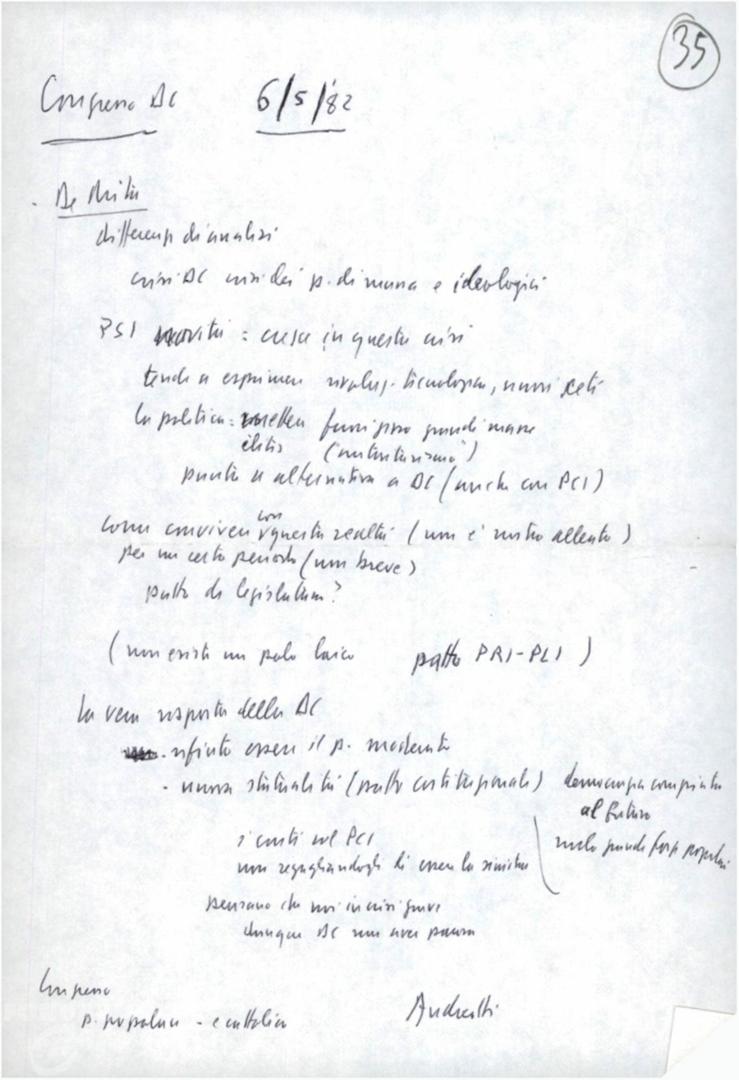 35
Congresso DC 6/5/'82
- De Mita
differenza di analisi
crisi DC crisi dei p. di massa e ideologici
PSI novità = cresce in questa crisi
tende a esprimere svolup. tecnologia, nuovi ceti
la politica: mettere fuori gioco grandi masse
élites
punta a alternativa a DC (anche con PCI)
come convivere con questa realtà (non è nostro alleato)
per un certo periodo (non breve)
patto di legislatura?
(non esiste un polo laico patto PRI-PLI)
la vera risposta della DC
- rifiuto essere il p. moderato
- nuova statualità (patto costituzionale) democrazia compiuta
al futuro
ruolo grandi forze popolari
i conti col PCI
non regaliandogli di essere la sinistra
pensano che noi in crisi grave
dunque DC non aver paura
Congresso
p. popolare - e cattolico Andreotti